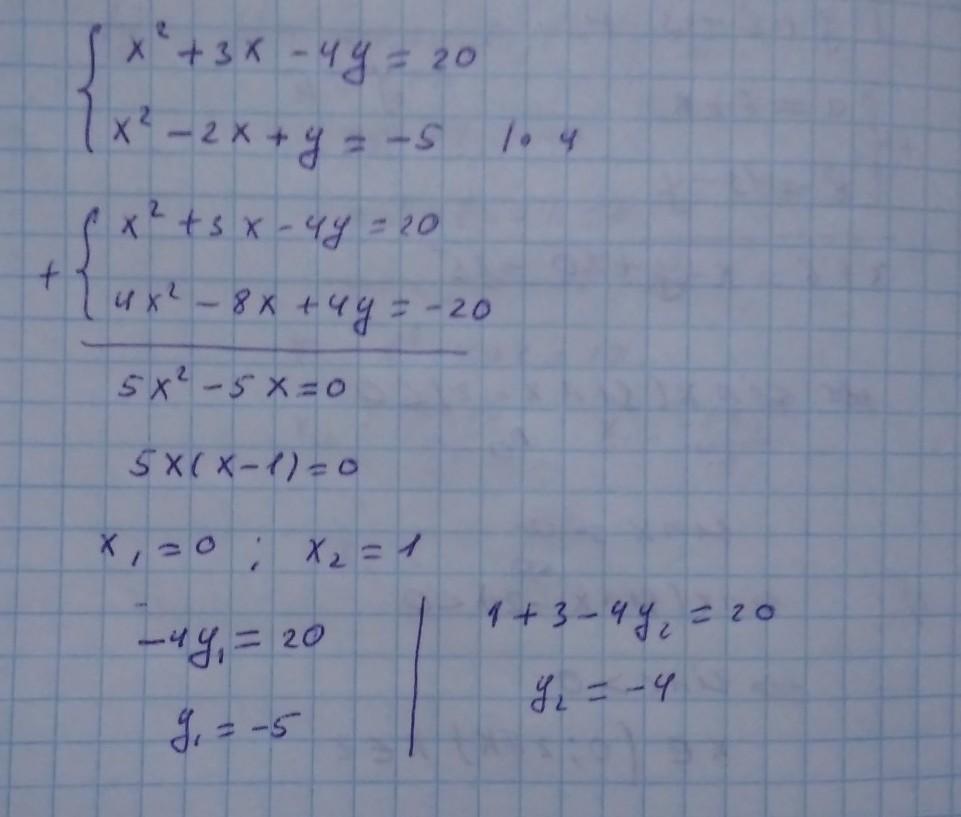 { x² + 3x - 4y = 20
x² - 2x + y = -5 | • 4
+ { x² + 3x - 4y = 20
4x² - 8x + 4y = -20
5x² - 5x = 0
5x(x - 1) = 0
x₁ = 0 ; x₂ = 1
-4y₁ = 20
y₁ = -5
1 + 3 - 4y₂ = 20
y₂ = -4